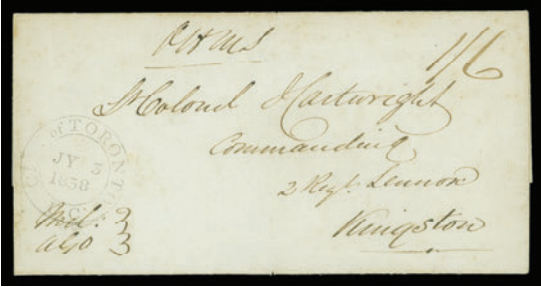 OHMS
1/6
Lt Colonel Cartwright
Commanding
2 Regt. Lennox
Kingston
CITY of TORONTO
JY 3
1838
U.C.